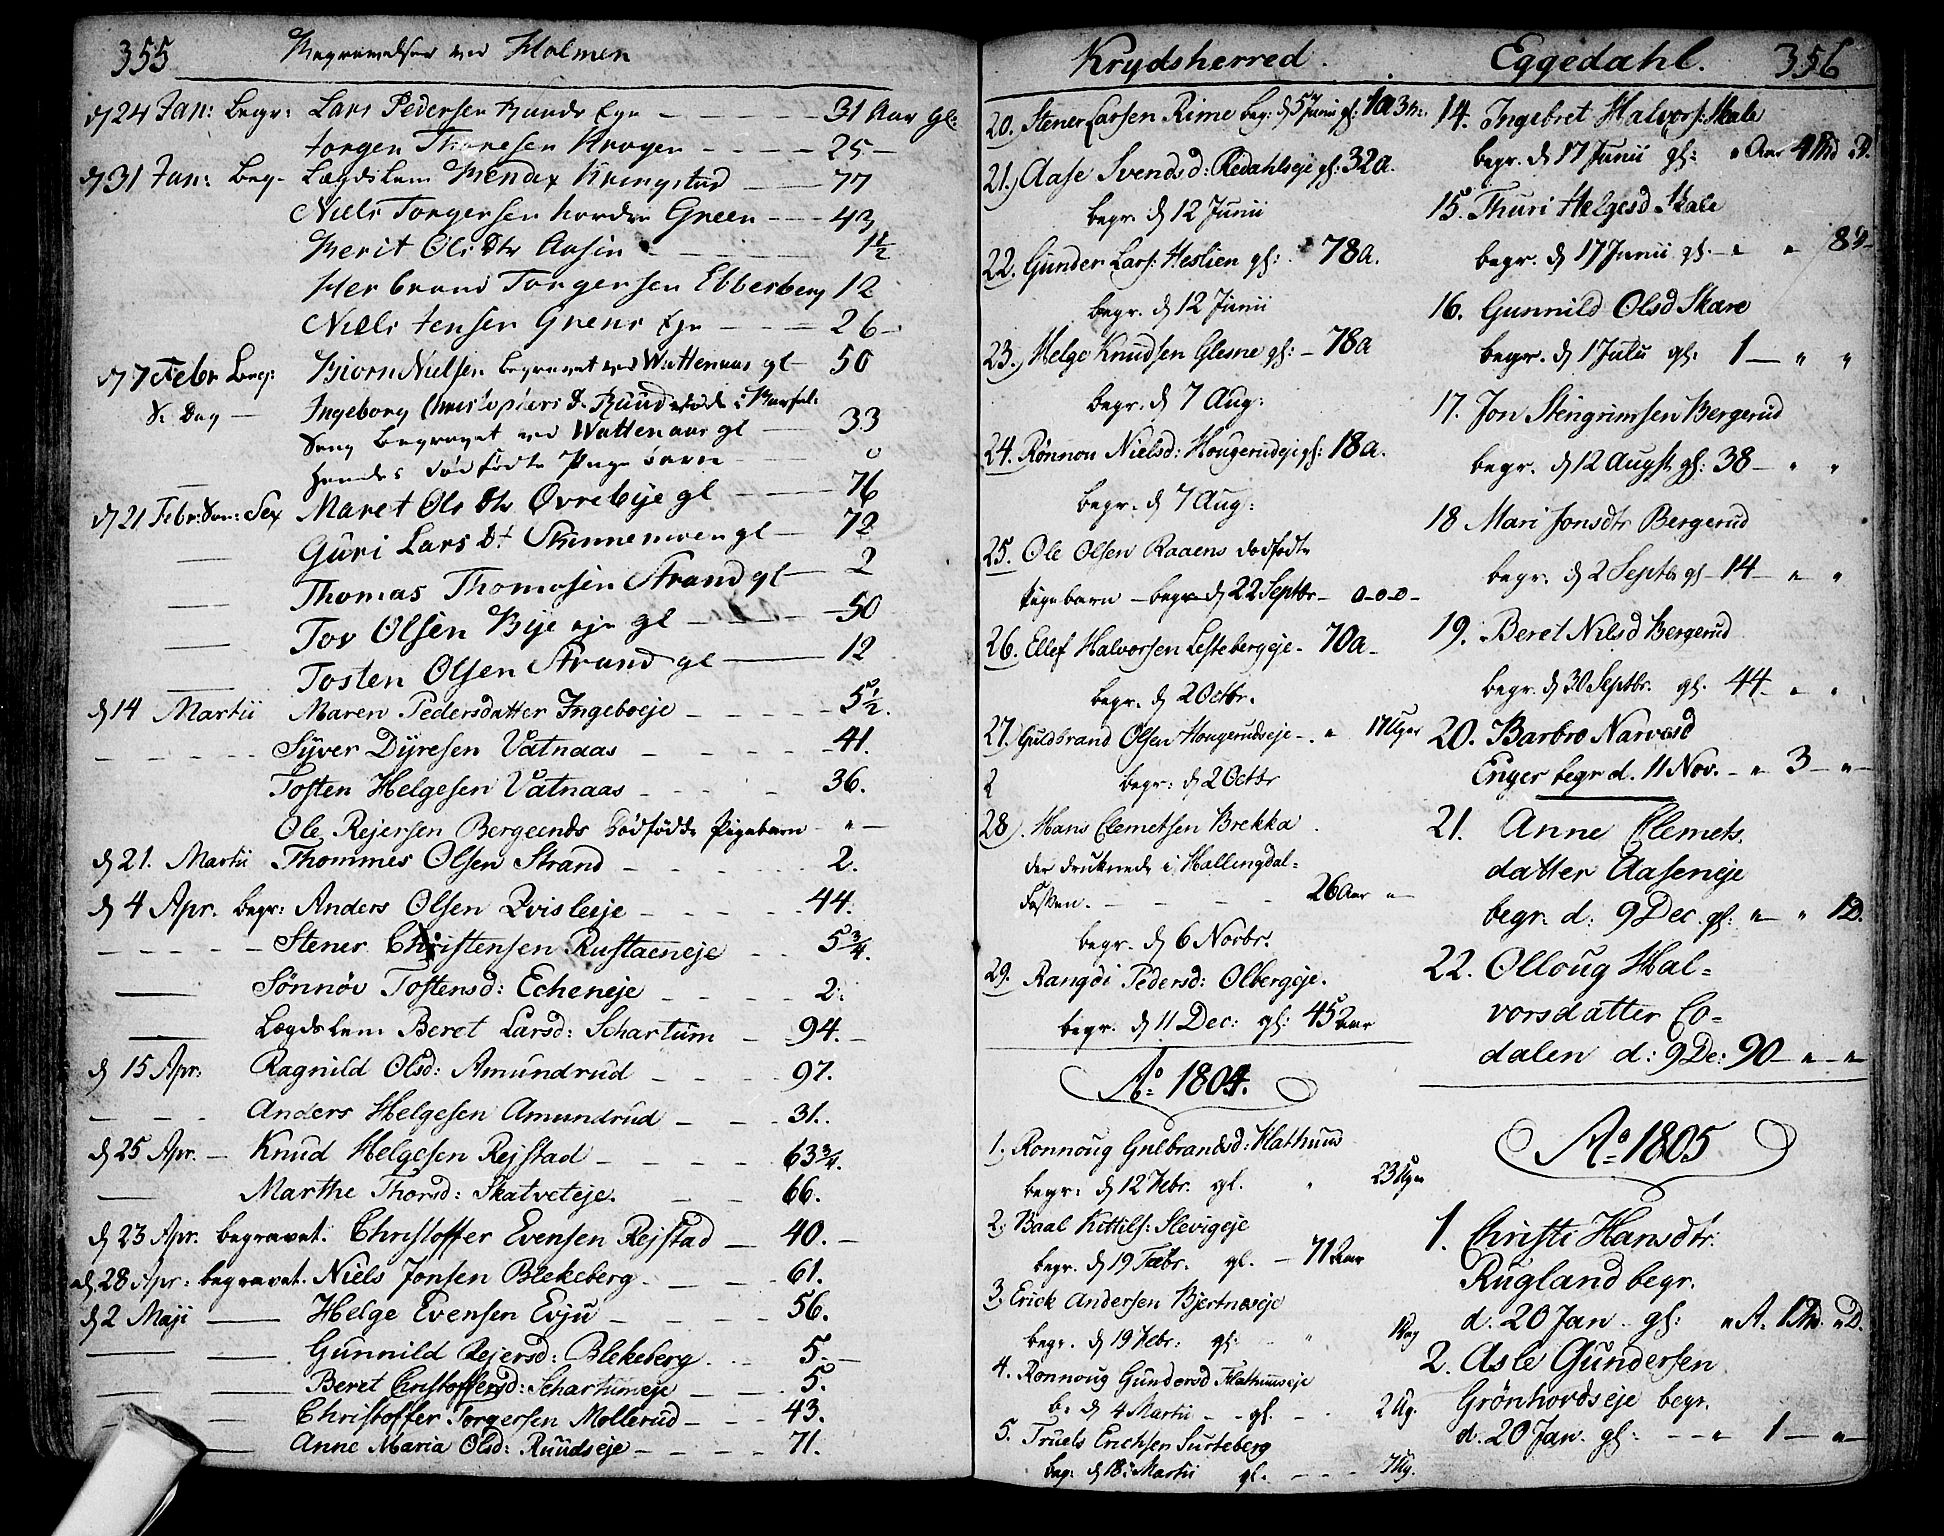 355 Begravelser ved Holmen
d 24 Jan: Begr: Lars Pedersen Ruuds Eye — 31 Aar gl:
Jorgen Thoresen Krogen — 25 —
d 31 Jan: Beg- Lægdslem Mendix Kringstad — 77
Niels Torgersen nordre Green — 43
Merit Ols Dtr Aasen — 1 1/2
Herbrand Torgersen Ebberberg 12
Niels Jensen Grens Eye — 26 —
d 7 Febr Begr: Biorn Nielsen begravet ved Wattenaas gl — 50
S. Dag — Ingeborg Christophers D. Ruud døde i Barsel-
Seng Begravet ved Wattenaas gl — 33
— hendes dødfødte Pige barn — 0
d 21 Febr: Dom: Sex Maret Ols Dtr Øvrebye gl — 76
— Guri Lars Dt. Skinnemoen gl — 72
— Thomas Thomasen Strand gl — 2
— Tov Olsen Bye eye gl — 50
— Tosten Olsen Strand gl — 12
d 14 Martii Maren Pedersdatter Ingeboeje — 5 1/2.
Syver Dyresen Vatnaas — 41.
Tosten Helgesen Vatnaas — 36.
Ole Rejersen Bergerends dødfødde Pigebarn - " -
d 21. Martii Thommes Olsen Strand — 2.
d 4 Apr. begr: Anders Olsen Qvisleeje — 44.
Stener Christensen Rustaeneje — 5 3/4.
Sønnøv Tostensd: Echeneje — 2.
Lægdslem Beret Larsd: Schartum — 94. —
d 15 Apr: Ragnild Olsd: Amundrud — 97.
Anders Helgesen Amundrud — 31.
d 25 Apr. — Knud Helgesen Rejstad — 63 3/4.
Marthe Thorsd: Skatveteje. 66.
d 23 Apr. begravet. Christoffer Evensen Rejstad — 40. —
d 28 Apr: begravet. Niels Jonsen Blekeberg — 61.
d 2 Maji — Helge Evensen Evju — 56.
Gunnild Rejersd: Blekeberg. 5. —
Beret Christoffersd: Schartumeje — 5.
Christoffer Torgersen Mollerud — 43.
Anne Maria Olsd: Ruudseje — 71.
Krydsherred.
20. Stener Larsen Rime beg: d 5 Junii gl: 10 a 3 M:
21.) Aase Svendsd: Redahlseje gl: 32 a.
begr. d 12 Junii
22. Gunder Lars: Heslien gl: 78 a.
begr. d 12 Junii
23.) Helge Knudsen Glesne gl: - 78 a
begr. d 7 Aug:
24. Rønnou Nielsd: Hougerudeje gl: 18 a.
begr. d 7 Aug:
25. Ole Olsen Raaens dødfødte
Pigebarn - begr d 22 Septbr - 0-0-0 -
26. Ellef Halvorsen Lestebergeje - 70 a -
begr. d 2 Octbr.
27. Guldbrand Olsen Hougerudseje -. " 17 Uger
2 begr: d 2 Octbr
28) Hans Clemetsen Brekka
der druknede i Hallingdal-
Fossen. - - - - 26 Aar "-
begr. d 6 Novbr.
29. Rangdi Pedersd: Olbergeje.
begr. d 11 Dec: gl: 45 Aar
Ao 1804.
1. Ronnoug Gulbrandsd: Flathuus
begr: d 12 Febr. gl. " 23 Uger
2. Baal Kittils: Slevigeje
begr. d 19 Febr. gl. — 71 Aar
3. Erick Andersen Bjertnæseje
begr. d 19 Febr: gl: " 1 Dag
4. Ronnoug Gundersd Flathuuseje
b. d 4 Martii - - gl. 2 Ug.
5. Truels Erichsen Surteberg
beg: d 18 Martii gl. - - - 7 Ug.
Eggedahl. 356
14. Ingebret Halvors: Skale
begr. d 17 Junii gl: " Aar 4 Md D.
15. Thuri Helgesd Skale
begr. d 17 Junii gl. — " " 8 D-
16. Gunnild Olsd Skare
begr. d 1 Julii gl: 1 — " "
17. Jon Stengrimsen Bergerud
begr. d 12 Augst gl: 38 — " "
18 Mari Jonsdtr Bergerud
begr. d 2 Septb gl - 14 — " "
19. Beret Nilsd Bergerud
begr. d 30 Septbr. gl. 44 — " "
20. Barbro Narvesd
Enger begr d. 11 Nov. - " 3 — " —
21. Anne Clemets-
datter Aaseneje
begr. d: 9 Dec. gl: " — " 1 D.
22. Olloug Hal-
vorsdatter Co-
dalen d: 9 De: 90 — " — " —
Ao 1805
1. Christi Hansdtr:
Rugland begr.
d. 20 Jan. gl: " A. 1 Md. " D.
2. Asle Gundersen
Grønhovdseje begr.
d. 20 Jan. gl: — — " 1 — " —